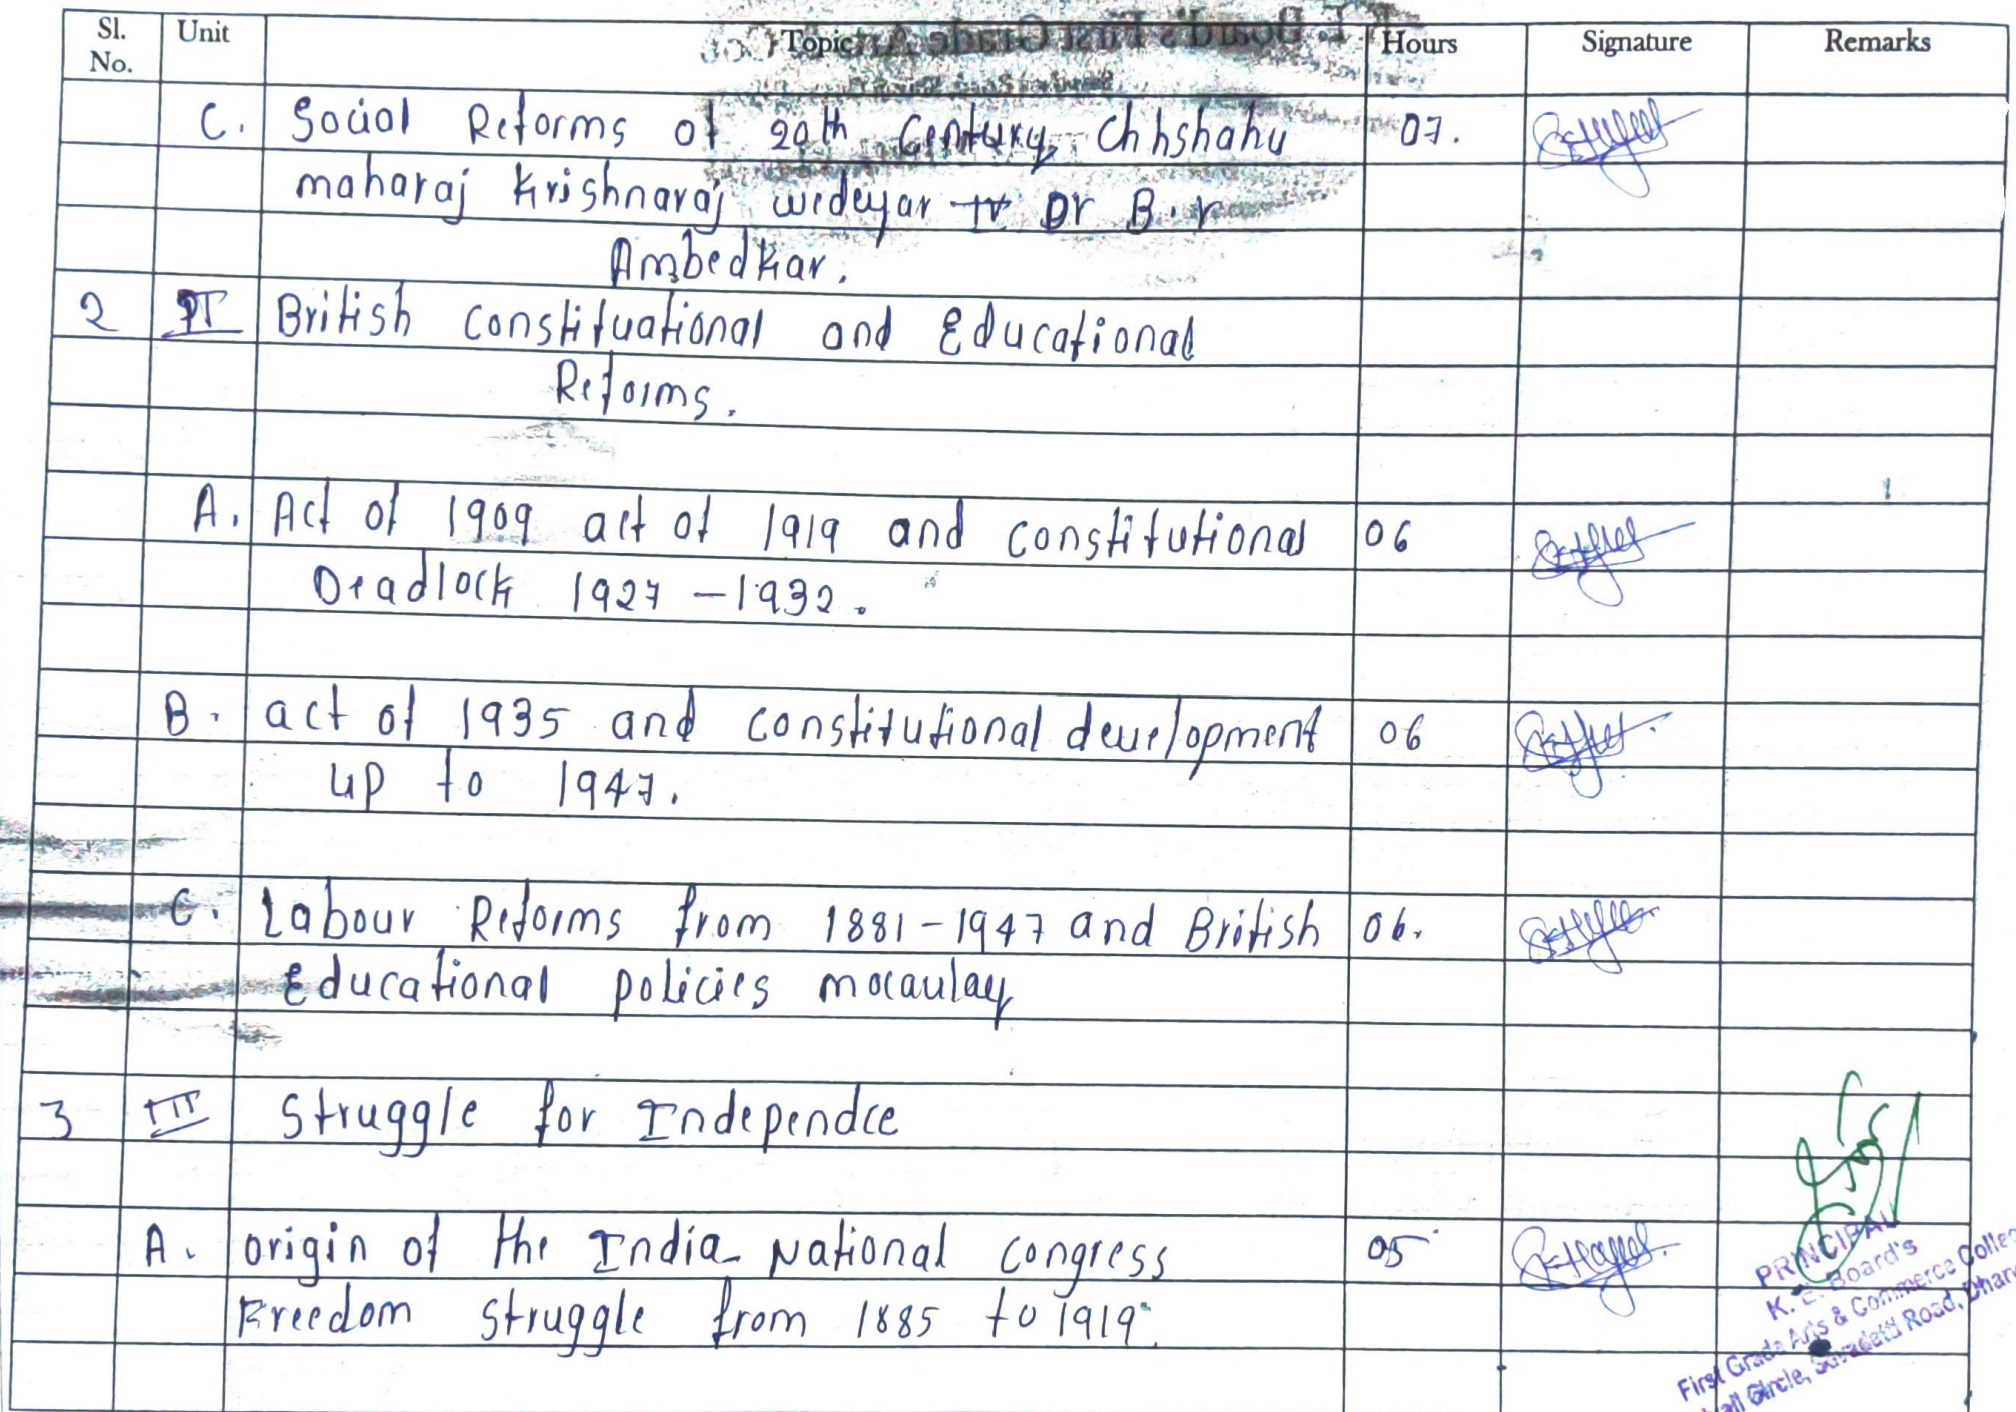 Sl. No. Unit Topic Hours Signature Remarks
C. Social Reforms of 20th Century, Chhshahu 07.
maharaj Krishnaraj wedeyar IV Dr B.r
Ambedkar.
2 II British constituational and Educational
Reforms.
A. Act of 1909 act of 1919 and constitutional 06
Deadlock 1927 - 1932.
B. act of 1935 and constitutional development 06
up to 1947.
C. Labour Reforms from 1881-1947 and British 06.
Educational policies macaulay
3 III Struggle for Independce
A. origin of the India National congress 05
Freedom struggle from 1885 to 1919.
PRINCIPAL
K. E. Board's
First Grade Arts & Commerce College
Circle, Savadatti Road, Dharwad